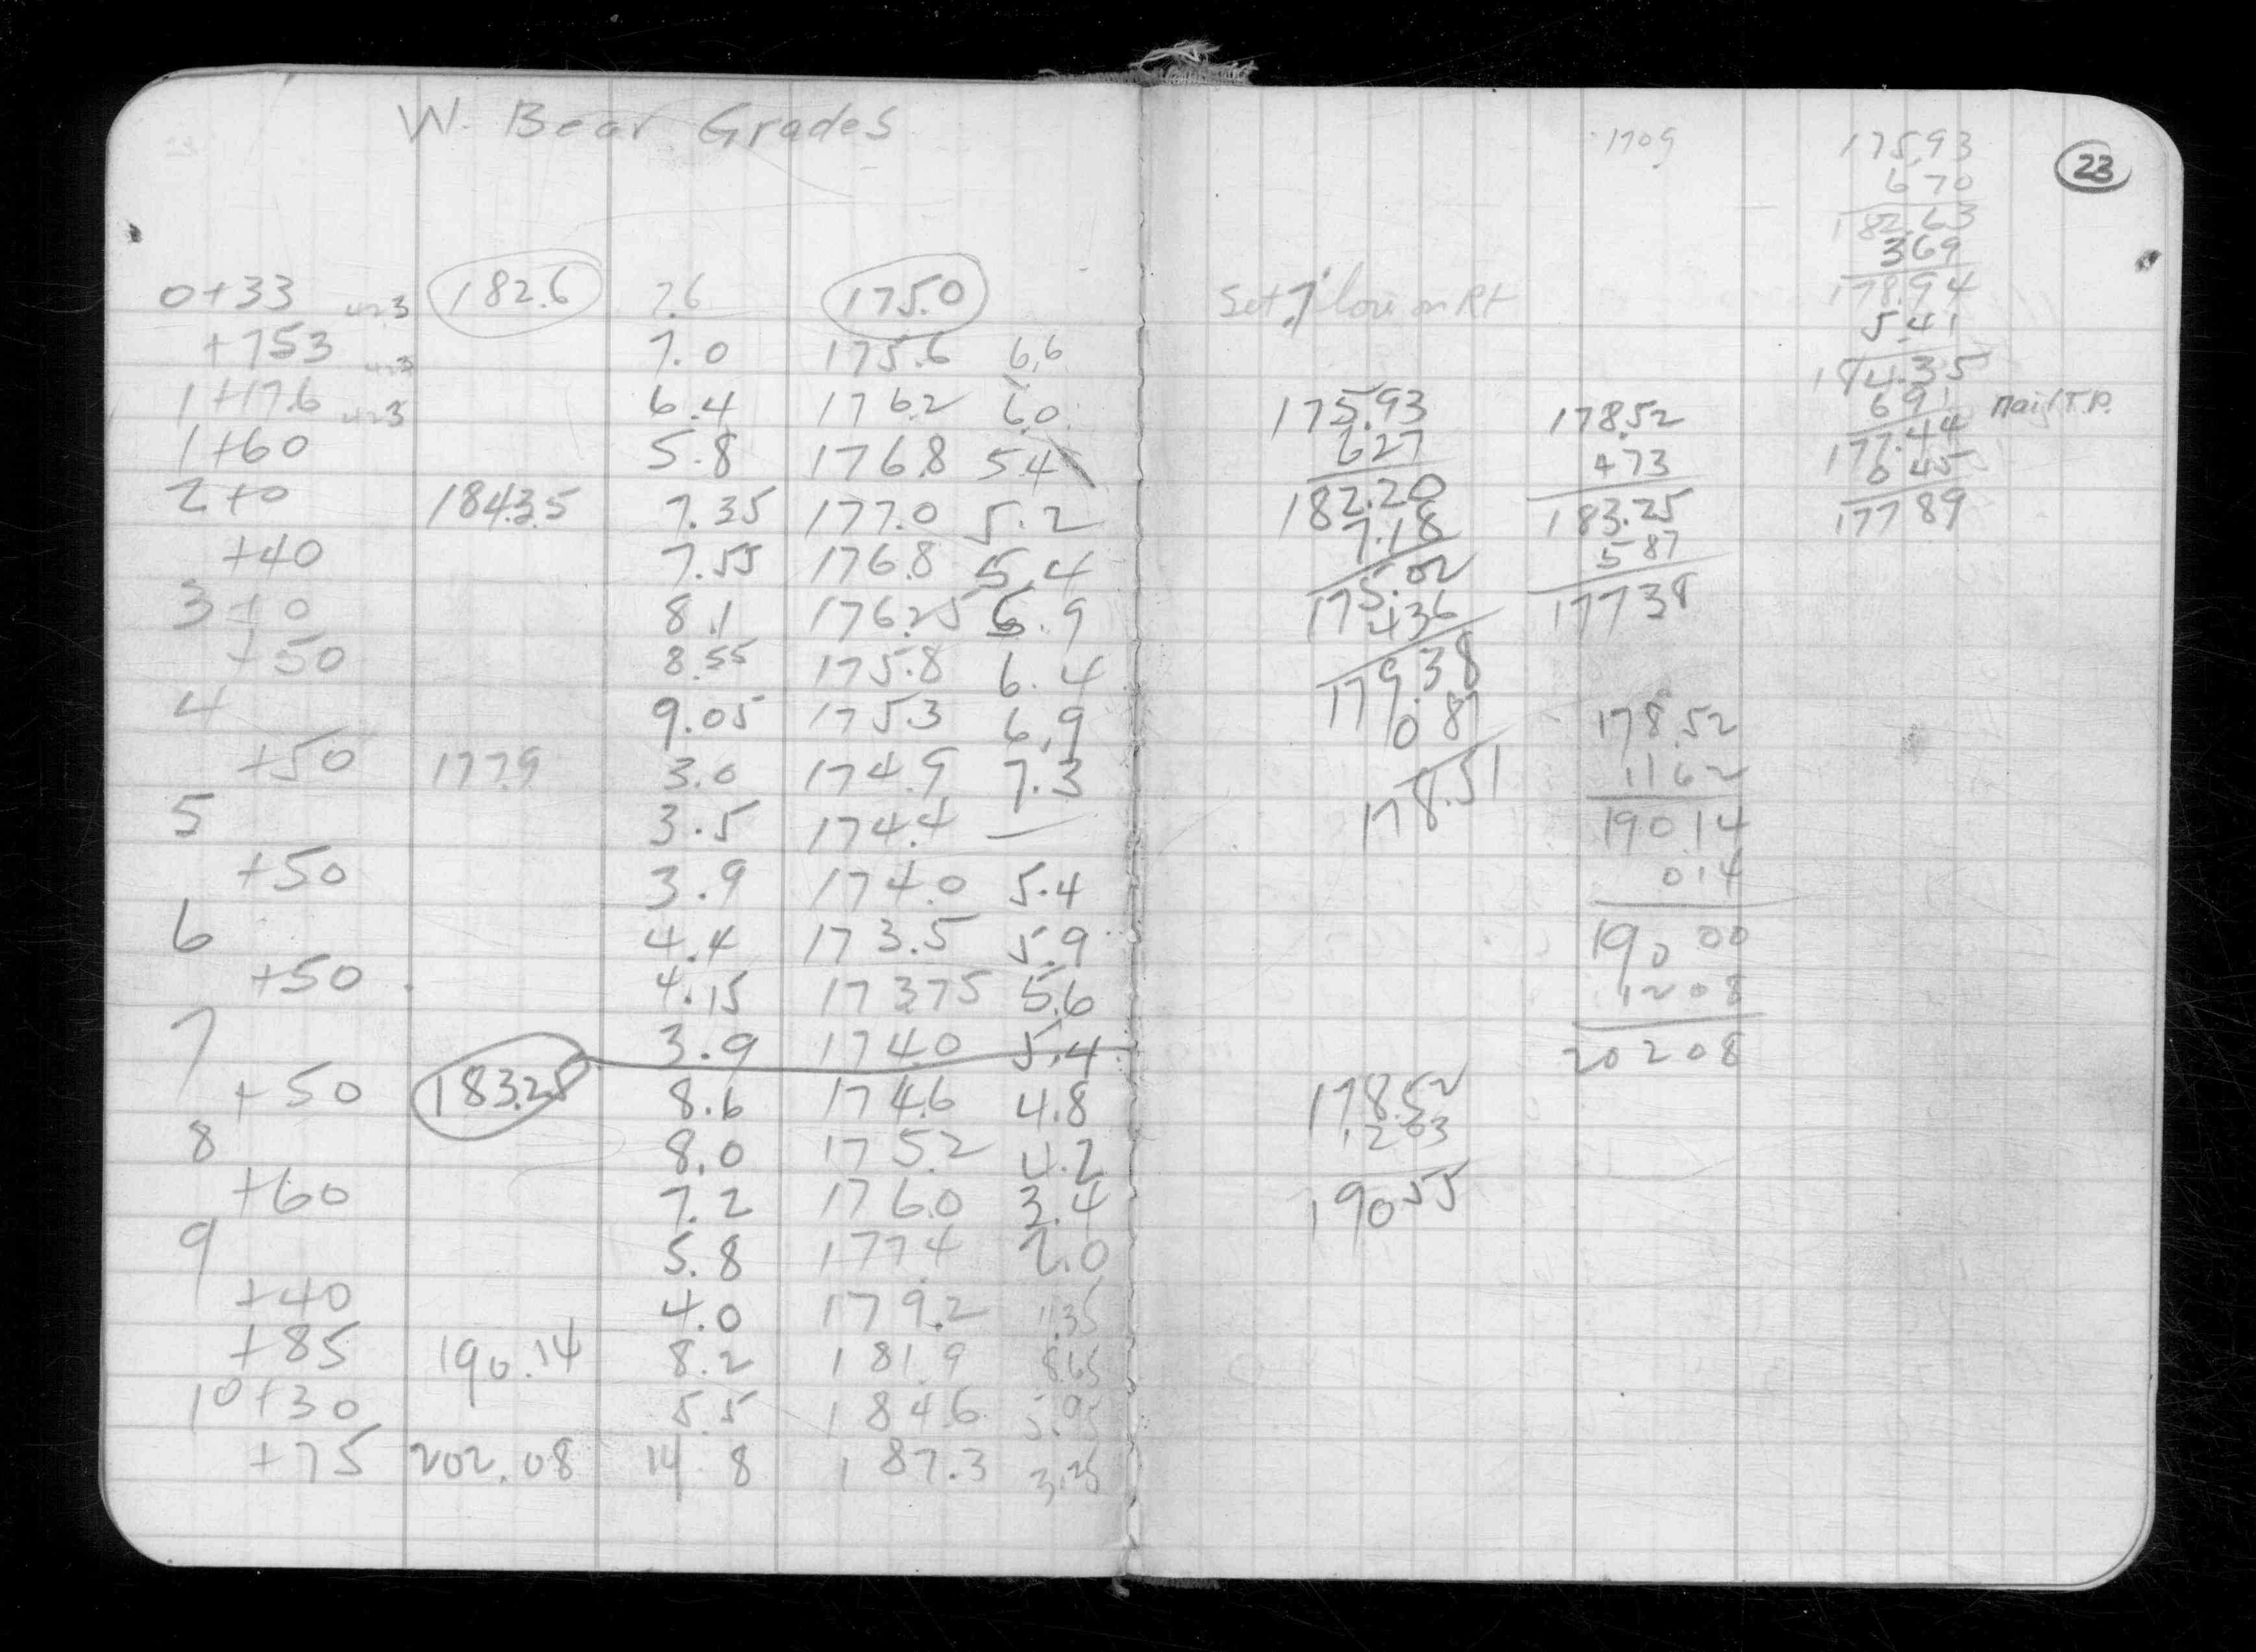 W. Bear Grades
0+33 42.3 182.6 7.6 175.0
+753 42.3 7.0 175.6 6.6
1+17.6 42.3 6.4 176.2 6.0
1+60 5.8 176.8 5.4
2+0 184.35 7.35 177.0 5.2
+40 7.55 176.8 5.4
3+0 8.1 176.25 5.9
+50 8.55 175.8 6.4
4 9.05 175.3 6.9
+50 177.9 3.0 174.9 7.3
5 3.5 174.4 —
+50 3.9 174.0 5.4
6 4.4 173.5 5.9
+50 4.15 173.75 5.6
7 3.9 174.0 5.4
+50 183.25 8.6 174.6 4.8
8 8.0 175.2 4.2
+60 7.2 176.0 3.4
9 5.8 177.4 2.0
+40 4.0 179.2 11.35
+85 190.14 8.2 181.9 8.65
10+30 5.5 184.6 5.95
+75 202.08 14.8 187.3 3.25
23
1709
Set .7' low on Rt
175.93
6.27
182.20
7.18
175.02
4.36
179.38
0.87
178.51
178.52
12.03
190.55
178.52
4.73
183.25
5.87
177.38
178.52
11.62
190.14
0.14
190.00
12.08
202.08
175.93
6.70
182.63
3.69
178.94
5.41
184.35
6.91 Nail T.P.
177.44
0.45
177.89